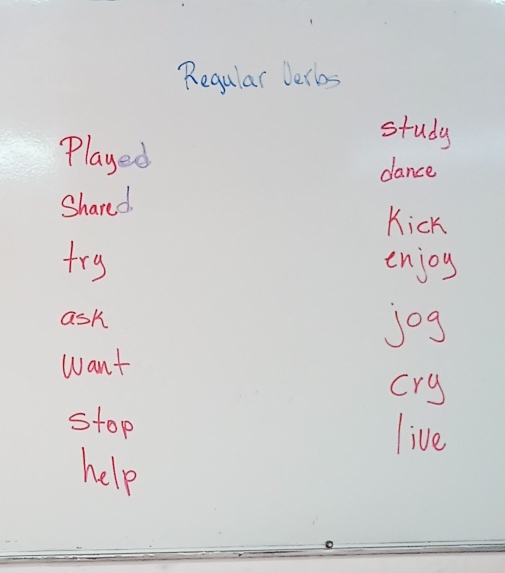 Regular Verbs
Played
Shared
try
ask
want
stop
help
study
dance
Kick
enjoy
jog
cry
live